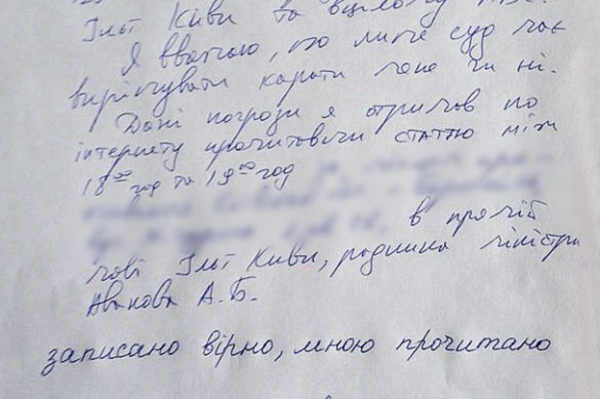 Іллі Киви та вцілому МВС.
Я вважаю, що лише суд має
вирішувати карати мене чи ні.
Дані погрози я отримав по
інтернету прочитавши статтю між
18⁰⁰ год та 19⁰⁰ год
в прямій
мові Іллі Киви, радника міністра
Авакова А.Б.
записано вірно, мною прочитано